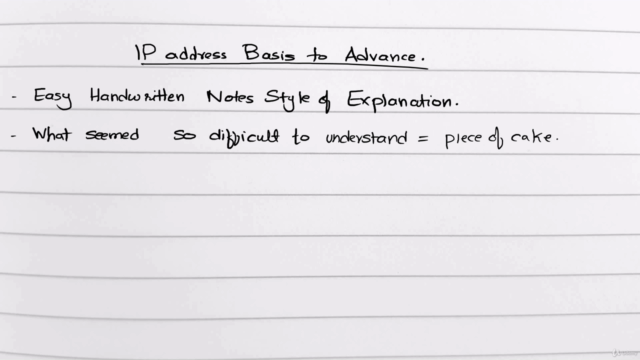 IP address Basis to Advance.
- Easy Handwritten Notes Style of Explanation.
- What seemed so difficult to understand = piece of cake.